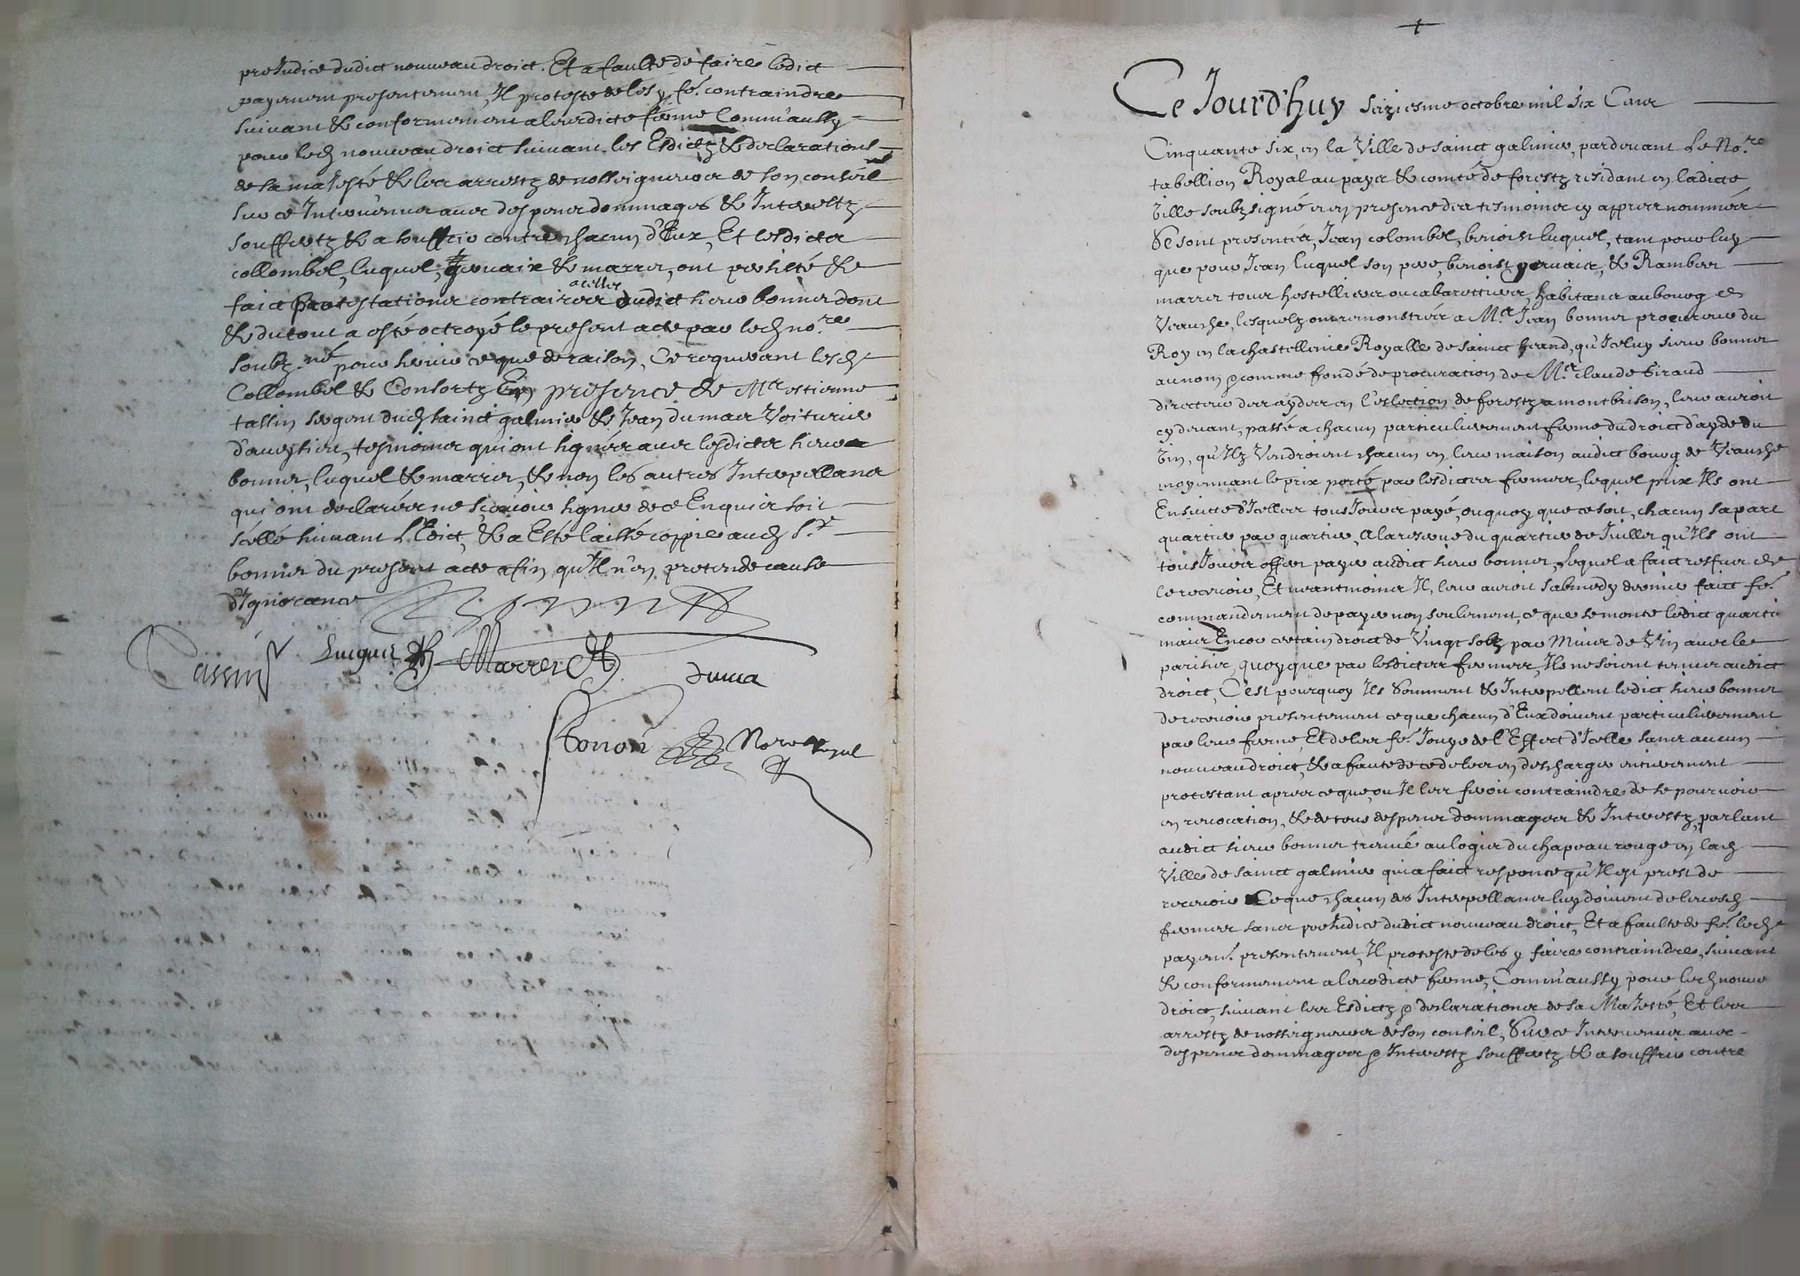 preiudice dudict nouveau droict. Et a faulte de faire ledict
payement presentement, Il proteste de les y fe.^ contraindre
suivant & conformement a leurdicte ferme Comm'aussy
pour led nouveau droict suivant les Edictz & declarations
de sa maiesté & les arrestz de nosseigneurs de son conseil
sur ce Intervenus avec despens dommages & Interestz
soufferts & a souffrir contre chacun d'Eux, Et lesdictz
collombel, luquel, gervaix & marrer, ont persisté &
faict protestations contraires a celles dudict sieur bonner dont
& du tout a esté octroyé le present acte par led no.re
soubz.né pour servir ce que de raison, Ce requerant lesd
Collombel & Consortz En presence de M.re estienne
tassin sergent dud sainct galmier & Jean dumas Voiturier
d'aveyzieu, tesmoins qui ont signés avec lesdictz sieur
bonner, luquel & marrer, & non les autres Interpellans
qui ont declarés ne sçavoir signer de ce Enquis soit
séellé suivant l'Edict, & a Esté laissé coppie aud s.r
bonner du present acte afin qu'Il n'en pretende cause
d'Ignorance
Tassin Luquel Marrer duma
No.re Royal
Ce Jourd'huy seiziesme octobre mil six Cens
Cinquante six, en la Ville de sainct galmier, pardevant Le No.re
tabellion Royal au pays & comté de forestz residant en ladicte
Ville soubzsigné et en presence des tesmoins cy appres nommés
Se sont presentés, Jean colombel, benoist luquel, tant pour luy
que pour Jean luquel son pere, benoist gervaix, & Rambert
marrer tous hostelliers ou cabarettiers, habitans au bourg de
Veauche, lesquelz ont remonstré a M.re Jean bonner procureur du
Roy en la chastellenie Royalle de sainct herand, qu'Iceluy sieur bonner
au nom & comme fondé de procuration de M.re claude Giraud
directeur des aydes en l'eslection de forestz a montbrison, leur auroit
cy devant, passé a chacun particulierement ferme du droict d'ayde du
Vin, qu'Ilz Vendroient chacun en leur maison audict bourg de Veauche
moyennant le prix porté par lesdictes fermes, lequel prix Ils ont
Ensuitte d'Icelles tousiours payé, ou quoy que ce soit, chacun sa part
quartier par quartier, a la reserve du quartier de Juillet qu'Ils ont
tousiours offert payer audict sieur bonner, Lequel a faict reffus de
le recevoir, Et neantmoings Il, leur auroit sabmedy dernier faict fe.^
commandement de payer non seulement, ce que se monte ledict quartier
mais Encor certain droict de Vingt solz par Muid de Vin avec le
parisis, quoyque par lesdictes fermes, Ils ne soient tenus audict
droict, C'est pourquoy Ils Somment & Interpellent ledict sieur bonner
de recevoir presentement ce que chacun d'Eux doivent particulierement
par leur ferme, Et de les fe.^ Jouyr de l'Effect d'Icelle sans aucun
nouveau droict, & a faute de ce de les en descharger entierement
protestant apres ce que, ou Il les feroit contraindre de se pourvoir
en revocation, & de tous despens dommages & Interestz, parlant
audict sieur bonner treuvé au logis du chapeau rouge en lad
Ville de sainct galmier qui a faict responce qu'Il est prest de
recevoir Ce que chacun des Interpellans luy doivent de leursd
fermes sans preiudice dudict nouveau droict, Et a faulte de fe.^ led
payem.t presentement, Il proteste de les y faire contraindre, suivant
& conformement a leurdicte ferme, Comm'aussy pour led nouveau
droict, suivant les Esdictz & declarations de sa Maiesté, Et les
arrestz de nosseigneurs de son conseil, Sur ce Intervenus avec
despens dommages & Interestz soufferts & a souffrir contre